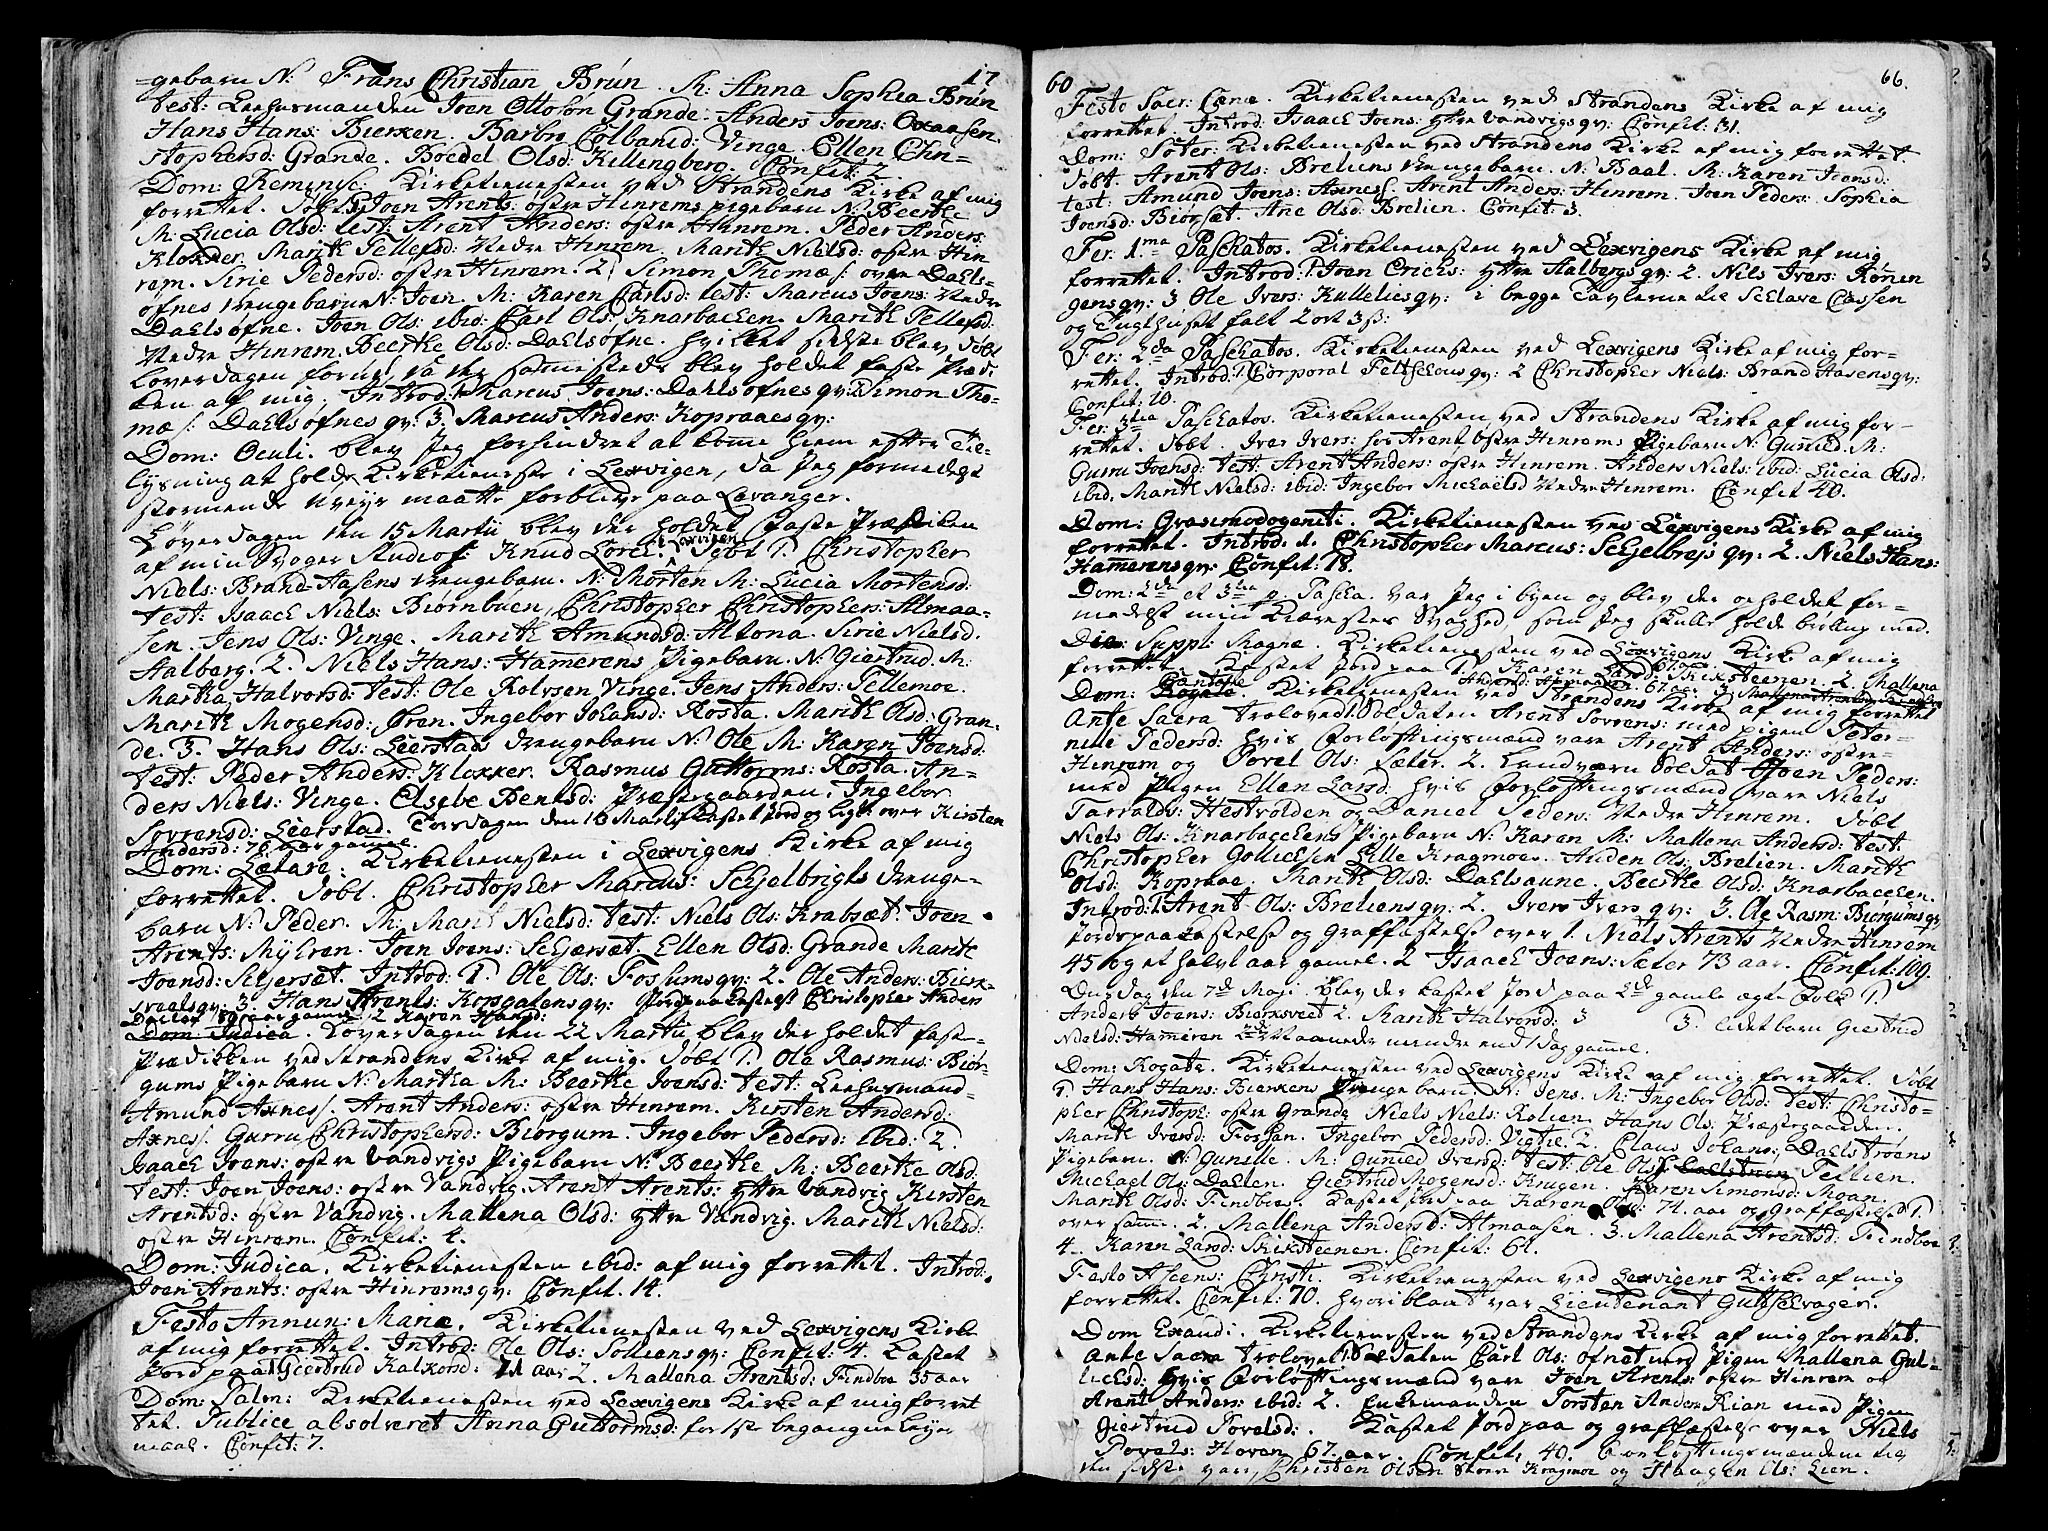 17
=gebarn N: Frans Christian Brún. M: Anna Sophia Brún
test: Leehusmanden Joen Ottosøn Grande. Anders Joens: Oxaasen.
Hans Hans: Bierken. Barbro Colbansd: Vinge. Ellen Chri=
stophersd: Grande. Boedel Olsd: Killingberg. Confit: 2.
Dom: Reminisc: Kirketienesten ved Strandens Kirke af mig
forrettet. Døbt 1. Joen Arents: østre Hinrems pigebarn N: Beerthe
M: Lucia Olsd: test: Arent Anders: østre Hinrem. Peder Anders:
Klokker. Marith Tellefsd: Nedre Hinrem. Marith Nielsd: østre Hin
rem. Sirie Pedersd: østre Hinrem. 2. Simon Thomæs: øvre Dahls=
øfnes drengebarn N: Joen. M: Karen Carlsd: test: Marcus Joens: Nedre
Dahlsøfne. Joen Ols: ibid: Carl Ols: Knarbacken. Marith Tellefsd:
Nedre Hinrem. Beerthe Olsd: Dahlsøfne. hvilket sidste blev døbt
Løverdagen forud, da der sammestedz blev holdet faste Præd:
ken af mig. Introd: 1. Marcus Joens: Dahlsøfnes qv: 2. Simon Tho=
mæs: Dahlsøfnes qv: 3. Marcus Anders: Kopraaes qv:
Dom: Oculi. blev Jeg forhindret at komme hiem efter Til=
lysning at holde Kirketieneste i Lexvigen, da Jeg formedelst
stormende Uveyr maatte forblive paa Levanger.
Løverdagen den 15 Martii blev der holdet faste Prædiken
af min Svoger Studios: Knud Lorck i Lexvigen. Døbt 1. Christopher
Niels: Brand-Aasens drengebarn. N: Morten M: Lucia Mortensd:
test: Isaach Niels: Biørnbúen, Christopher Christophers: Almaa=
sen. Jens Ols: Vinge. Marith Amundsd: Altona. Sirie Nielsd.
Aalberg. 2. Niels Hans: Hamerens Pigebarn. N: Giertrud. M:
Martha Halvorsd: test: Ole Rolvsen Vinge. Jens Anders: Tellemoe.
Marith Mogensd: Øren. Ingebor Johansd: Rosta. Marith Olsd: Gran=
de. 3. Hans Ols: Leerstads drengebarn N: Ole M: Karen Joensd:
test: Peder Anders: Klokker. Rasmus Guttorms: Rosta. An=
ders Niels: Vinge. Elsebe Bentsd: Præstegaarden. Ingebor
Sovrensd: Leerstad. Torsdagen den 10 Martii kastet Jord og ligt: over Kirsten
Andersd: 76 aar gamel.
Dom: Lætare. Kirketienesten i Lexvigens Kirke af mig
forrettet. Døbt. Christopher Marcus: Schjelbrigts drenge=
barn N: Peder. M: Marit Nielsd: test: Niels Ols: Krabsæt. Joen
Arents: Myhren. Joen Joens: Schjersæt. Ellen Olsd: Grande Marith
Joensd: Schjersæt. Introd: 1. Ole Ols: Fossums qv: 2. Ole Anders: Bierk=
svals qv: 3. Hans Arents: Kopgatens qv: Jordspaakastelse Christopher Anders
Dahlen 80 aar gamel 2 Karen Hansd:
Dom Judica. Løverdagen den 22 Martii blev der holdet faste=
Prædikken ved Strandens Kirke af mig. Døbt 1. Ole Rasmus: Biør=
gums Pigebarn N: Martha M: Beerthe Joensd: test: Leehusmand
Amund Axness. Arent Anders: østre Hinrem. Kirsten Andersd:
Axness: Gurru Christophersd: Biørgum. Ingebor Pedersd: ibid: 2.
Isaach Joens: østre Vandvigs Pigebarn N: Beerthe M: Beerthe Olsd:
test: Joen Joens: østre Vandvig. Arent Arents: yttre Vandvig Kirsten
Arentsd: østre Vandvig. Mallena Olsd: yttre Vandvig. Marith Nielsd:
østre Hinrem. Confit: 4.
Dom: Judica. Kirketienesten ibid: af mig forrettet. Introd:
Joen Arents: østre Hinrems qv: Confit: 14.
Festo Annun: Mariæ. Kirketienesten ved Lexvigens Kirke
af mig forrettet. Introd: Ole Ols: Solliens qv: Confit: 4. kastet
Jord paa 1 Giertrud Kalkorsd: 71 aar 2. Mallena Arentsd: Findboe 35 aar
Dom: Palm: Kirketienesten ved Lexvigens Kirke af mig forret
tet. Publice absolveret Anna Guttormsd: for 1ste begangne leyer
maal. Confit: 7.
60
66.
Festo Sacr: Cæna. Kirketienesten ved Strandens Kirke af mig
forrettet. Introd: Isaach Joens: yttre Vandvigs qv: Confit: 31.
Dom: Soter: Kirketienesten ved Strandens Kirke af mig forrettet.
Døbt. Arent Ols: Breliens drengebarn. N: Baal. M: Karen Joensd:
test: Amund Joens: Axness. Arent Anders: Hinrem. Joen Peders: Sophia
Joensd: Biørsæt. Ane Olsd: Brelien. Confit: 3.
Fer. 1.ma Paschatos. Kirketienesten ved Lexvigens Kirke af mig
forrettet. Introd: 1. Joen Erichs: yttre Aalbergs qv: 2. Niels Ivers: Rønen
gens qv: 3 Ole Ivers: Kulleliesqv: i begge Tavlerne til Sclave Cassen
og Tugthuset falt 2 ort 3 ß:
Fer: 2da Paschatos. Kirketienesten ved Lexvigens Kirke af mig for=
rettet. Introd: 1. Corporal Feltschous qv: 2 Christopher Niels: Brand Aasens qv:
Confit: 10.
Fer. 3tia Paschatos. Kirketienesten ved Strandens Kirke af mig for=
rettet. Døbt. Iver Ivers: hos Arent østre Hinrems Pigebarn N: Gunild. M:
Gurru Joensd: test: Arent Anders: østre Hinrem. Anders Niels: ibid: Lucia Olsd:
ibid. Marith Nielsd: ibid: Ingebor Michaelsd Nedre Hinrem. Confit 40.
Dom: Qvasimodogeniti. Kirketienesten ved Lexvigens Kirke af mig
forrettet. Introd: 1. Christopher Marcus: Schjelbrejs qv: 2. Niels Hans:
Hamerens qv: Confit: 18.
Dom: 2da et 3tia p. Pascha. var Jeg i byen og blev der opholdet for=
medelst min Kiærestes Svaghed, som Jeg skulle holde bryllup med.
Die: Suppl: Magnæ. Kirketienesten ved Lexvigens Kirke af mig
forrettet. kastet Jord paa 1. Karen Larsd: Skiksteenen. 2. Mallena
Andersd: Almaasen 67 aar. 3.
Dom: Cantate. Kirketienesten ved Strandens Kirke af mig forrettet
Ante Sacra trolovedt 1. Soldaten Arent Sovrens: med pigen Peter=
nille Pedersd: hvis forløftingsmænd vare Arent Anders: østre=
Hinrem og Povel Ols: Sæter. 2. Landværn Soldat Joen Peders:
med Pigen Ellen Larsd: hvis forløftingsmænd vare Niels
Tarralds: Hestvolden og Daniel Peders: Nedre Hinrem. Døbt
Niels Ols: Knarbackens Pigebarn N: Karen M: Mallena Andersd: test:
Christopher Gollichsen Lille Kragmoe. Auden Ols: Brelien. Marith
Olsd: Kopraae. Marith Olsd: Dahlsaune. Beerthe Olsd: Knarbacken.
Introd: 1. Arent Ols: Breliens qv: 2. Iver Ivers qv: 3. Ole Rasm: Biørgums qv:
Jordspaakastelse og graffæstelse over 1. Niels Arents Nedre Hinrem
45 og et halv aar gamel. 2 Isaach Joens: Sæter 73 aar. Confit: 109.
Onsdag den 7de Maji blev der kastet Jord paa 2de gamle ægte folk 1.
Anders Joens: Biørksvedt 2. Marith Halvorsd: 3 3. lidet barn Giertrud
Nielsd: Hameren 2de Maaneder mindre end 1 dag gamel.
Dom: Rogate. Kirketienesten ved Lexvigens Kirke af mig forrettet. Døbt
1. Hans Hans: Bierkens Drengebarn. N: Jens. M: Ingebor Olsd: test: Christo=
pher Christoph: østre Grande Niels Niels: Rolien. Hans Ols: Præstegaarden.
Marith Iversd: Fossan. Ingebor Pedersd: Vigtil. 2. Claus Johans: Dahlstrøens
Pigebarn. N: Gunille. M: Gunild Iversd: test: Ole Ols: Tellien.
Michael Ols: Dahlen. Giertrud Mogensd: Krogen. Karen Simonsd: Moan.
Marith Olsd: Findboe. kastet Jord paa Karen Olsd: 74. aar og graffæstelse 1.
over samme. 2. Mallena Andersd: Almaasen. 3. Mallena Arentsd: Findboe
4. Karen Larsd: Skiksteenen. Confit: 61.
Festo Ascens: Christi. Kirketienesten ved Lexvigens Kirke af mig
forrettet. Confit: 70. hvoriblant var Lieutenant Guldschager.
Dom Exaudi. Kirketienesten ved Strandens Kirke af mig forrettet.
Ante Sacra trolovet 1. Soldaten Carl Ols: ofnat med Pigen Mallena Gul=
lichsd: hvis forløftingsmænd vare Joen Arents: østre Hinrem og
Arent Anders: ibid: 2. Enkemanden Torsten Anders: Rian med Pigen
Giertrud Povelsd: . Kastet Jord paa og graffæstelse over Niels
Povels: Hoven 67. aar. Confit: 40. forløftingsmændene til
den sidste vare Christen Olsen store Kragmoe og Haagen Ols: Lien.